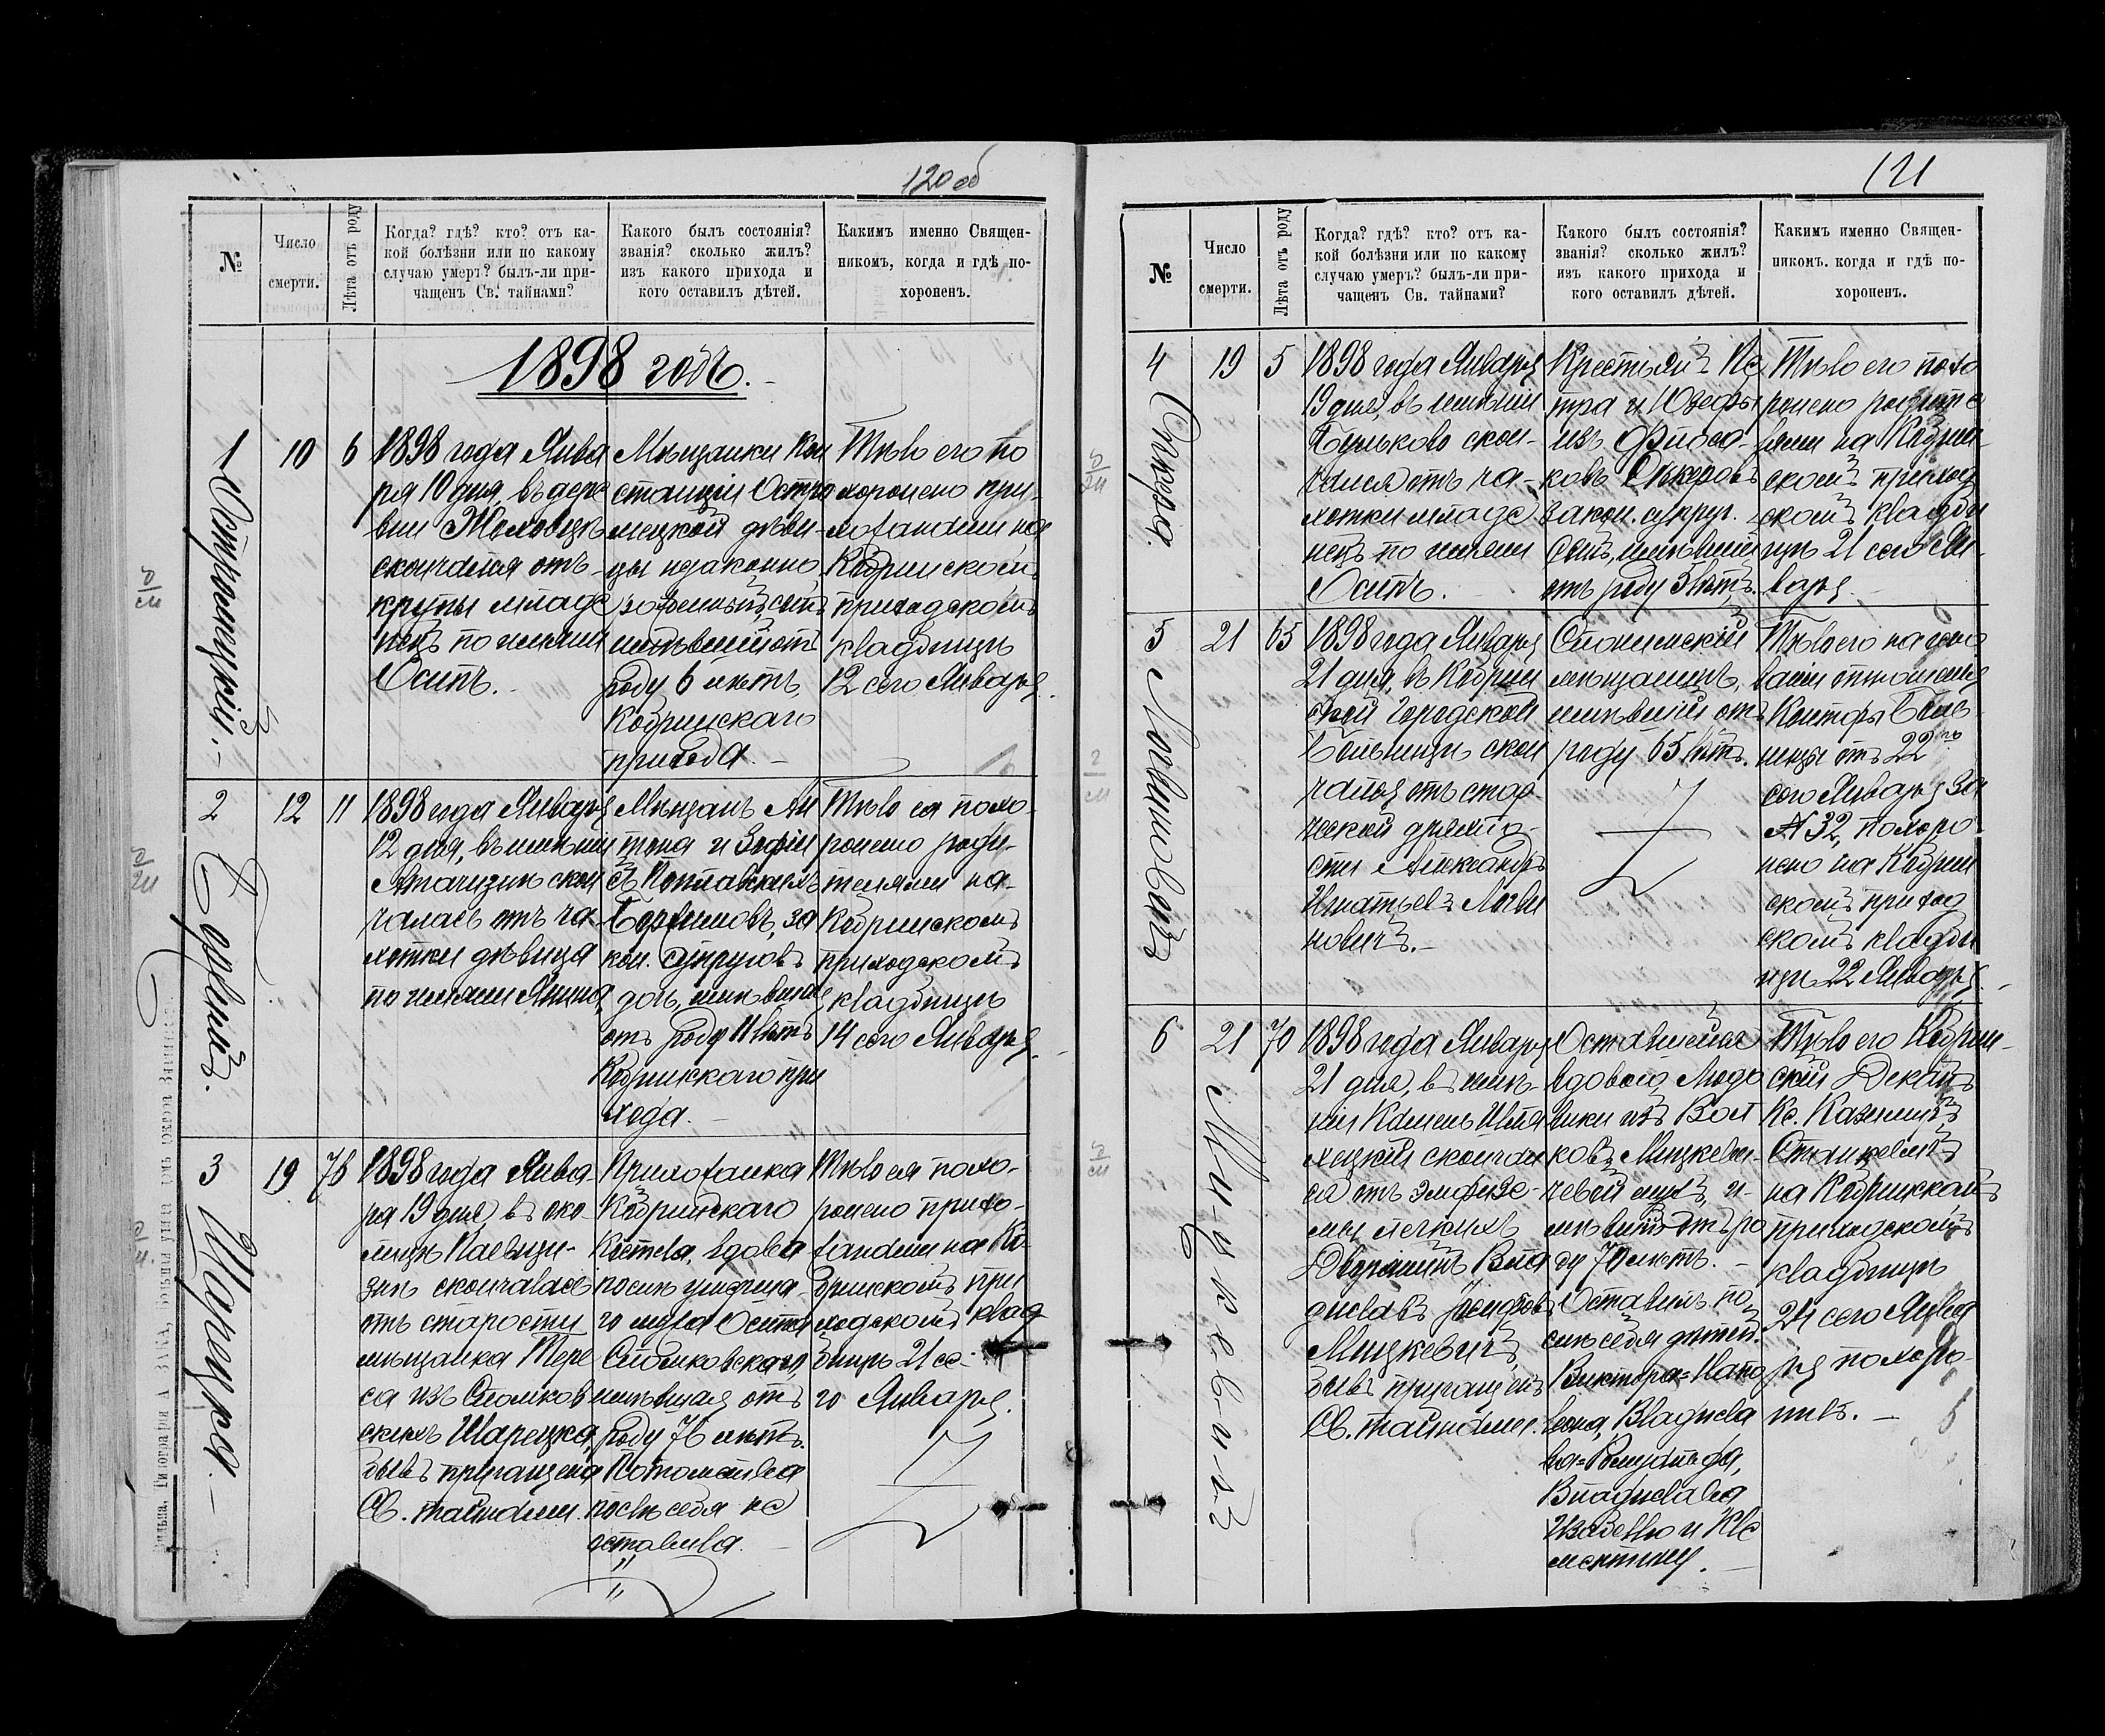 120 об
№
Число
смерти.
Лѣта отъ роду
Когда? гдѣ? кто? отъ ка-
кой болѣзни или по какому
случаю умеръ? былъ-ли при-
чащенъ Св. тайнами?
Какого былъ состоянія?
званія? сколько жилъ?
изъ какого прихода и
кого оставилъ дѣтей.
Какимъ именно Священ-
никомъ, когда и гдѣ по-
хороненъ.
1898 годъ.
1
Островецкій.
10
6
1898 года Янва
ря 10 дня, въ дерс
вни
скончался отъ
крупы младе
нецъ по имени
Осипъ.
Мѣщанки Кон
станціи Остро
мецкой дѣви-
цы незаконно
рожденный, сынъ
имѣвшій отъ
роду 6 лѣтъ,
Кобринскаго
прихода.
Тѣло его по
хоронено при-
хожанами на
Кобринскомъ
приходскомъ
кладбищѣ
12 сего Января.
2
12
11
1898 года Января
12 дня, въ имѣніи
скон
чалась отъ ча-
хотки дѣвица
по имени Янина,
Мѣщанъ Ан
тона и Зофіи
Боровиковъ, за
кон. супруговъ
дочь, имѣвшая
отъ роду 11 лѣтъ
Кобринскаго при
хода.
Тѣло ея похо-
ронено роди-
телями на
Кобринскомъ
приходскомъ
кладбищѣ
14 сего Января.
3
Шарецка
19
76
1898 года Янва-
ря 19 дня, въ око-
лицѣ
скончалась
отъ старости
мѣщанка Тере
са изъ Стомков
скихъ Шарецка,
бывъ пріобщена
Св. тайнами.
Прихожанка
Кобринскаго
Костела, вдова
послѣ умерша-
го мужа Осипа
имѣвшая отъ
роду 76 лѣтъ.
Потомства
послѣ себя не
оставила.
Тѣло ея похо-
ронено прихо-
жанами на Ко-
бринскомъ при
ходскомъ клад
бищѣ 21 се-
го Января.
121
№
Число
смерти.
Лѣта отъ роду
Когда? гдѣ? кто? отъ ка-
кой болѣзни или по какому
случаю умеръ? былъ-ли при-
чащенъ Св. тайнами?
Какого былъ состоянія?
званія? сколько жилъ?
изъ какого прихода и
кого оставилъ дѣтей.
Какимъ именно Священ-
никомъ. когда и гдѣ по-
хороненъ.
4
19
5
1898 года Января
19 дня, въ имѣніи
скон-
чался отъ ча-
хотки младе
нецъ по имени
Осипъ.
Крестьянъ Пе
тра и Юзефы
изъ
закон. супруг.
сынъ, имѣвшій
отъ роду 5 лѣтъ.
Тѣло его похо
ронено родите
лями на Кобрин
скомъ приход
скомъ кладби
щѣ 21 сего Ян-
варя.
5
Логиновичъ
21
65
1898 года Января
21 дня, въ Кобрин
ской Городской
больницѣ скон
чался отъ стар
ческой дряхло-
сти Александръ
Игнатьевъ Логи
новичъ.
Слонимскій
мѣщанинъ,
имѣвшій отъ
роду 65 лѣтъ.
Тѣло его на осно
ваніи отношенія
Конторы Боль
ницы отъ 22го
сего Января за
№ 32, похоро
нено на Кобрин
скомъ приход
скомъ кладби
щѣ 22 Января.
6
Мицкевичъ
21
70
1898 года Января
21 дня, въ имѣ-
ніи Камень Шля
хецкій скончал
ся отъ эмфизе-
мы легкихъ
Дворянинъ Вла
диславъ Іосифовъ
Мицкевичъ,
бывъ пріобщенъ
Св. тайнами.
Оставшейся
вдовою Людо
вики изъ Вол
ковъ Мицкеви-
чевой мужъ, и-
мѣвшій отъ ро
ду 70 лѣтъ.
Оставилъ по-
слѣ себя дѣтей:
Виктора-Напо
леона, Владисла
ва-
Владислава,
Изабеллю и Кле
ментину.
Тѣло его Кобрин-
скій Деканъ
Кс. Казиміръ
на Кобринскомъ
приходскомъ
кладбищѣ
24 сего Янва
ря похоро-
нилъ.